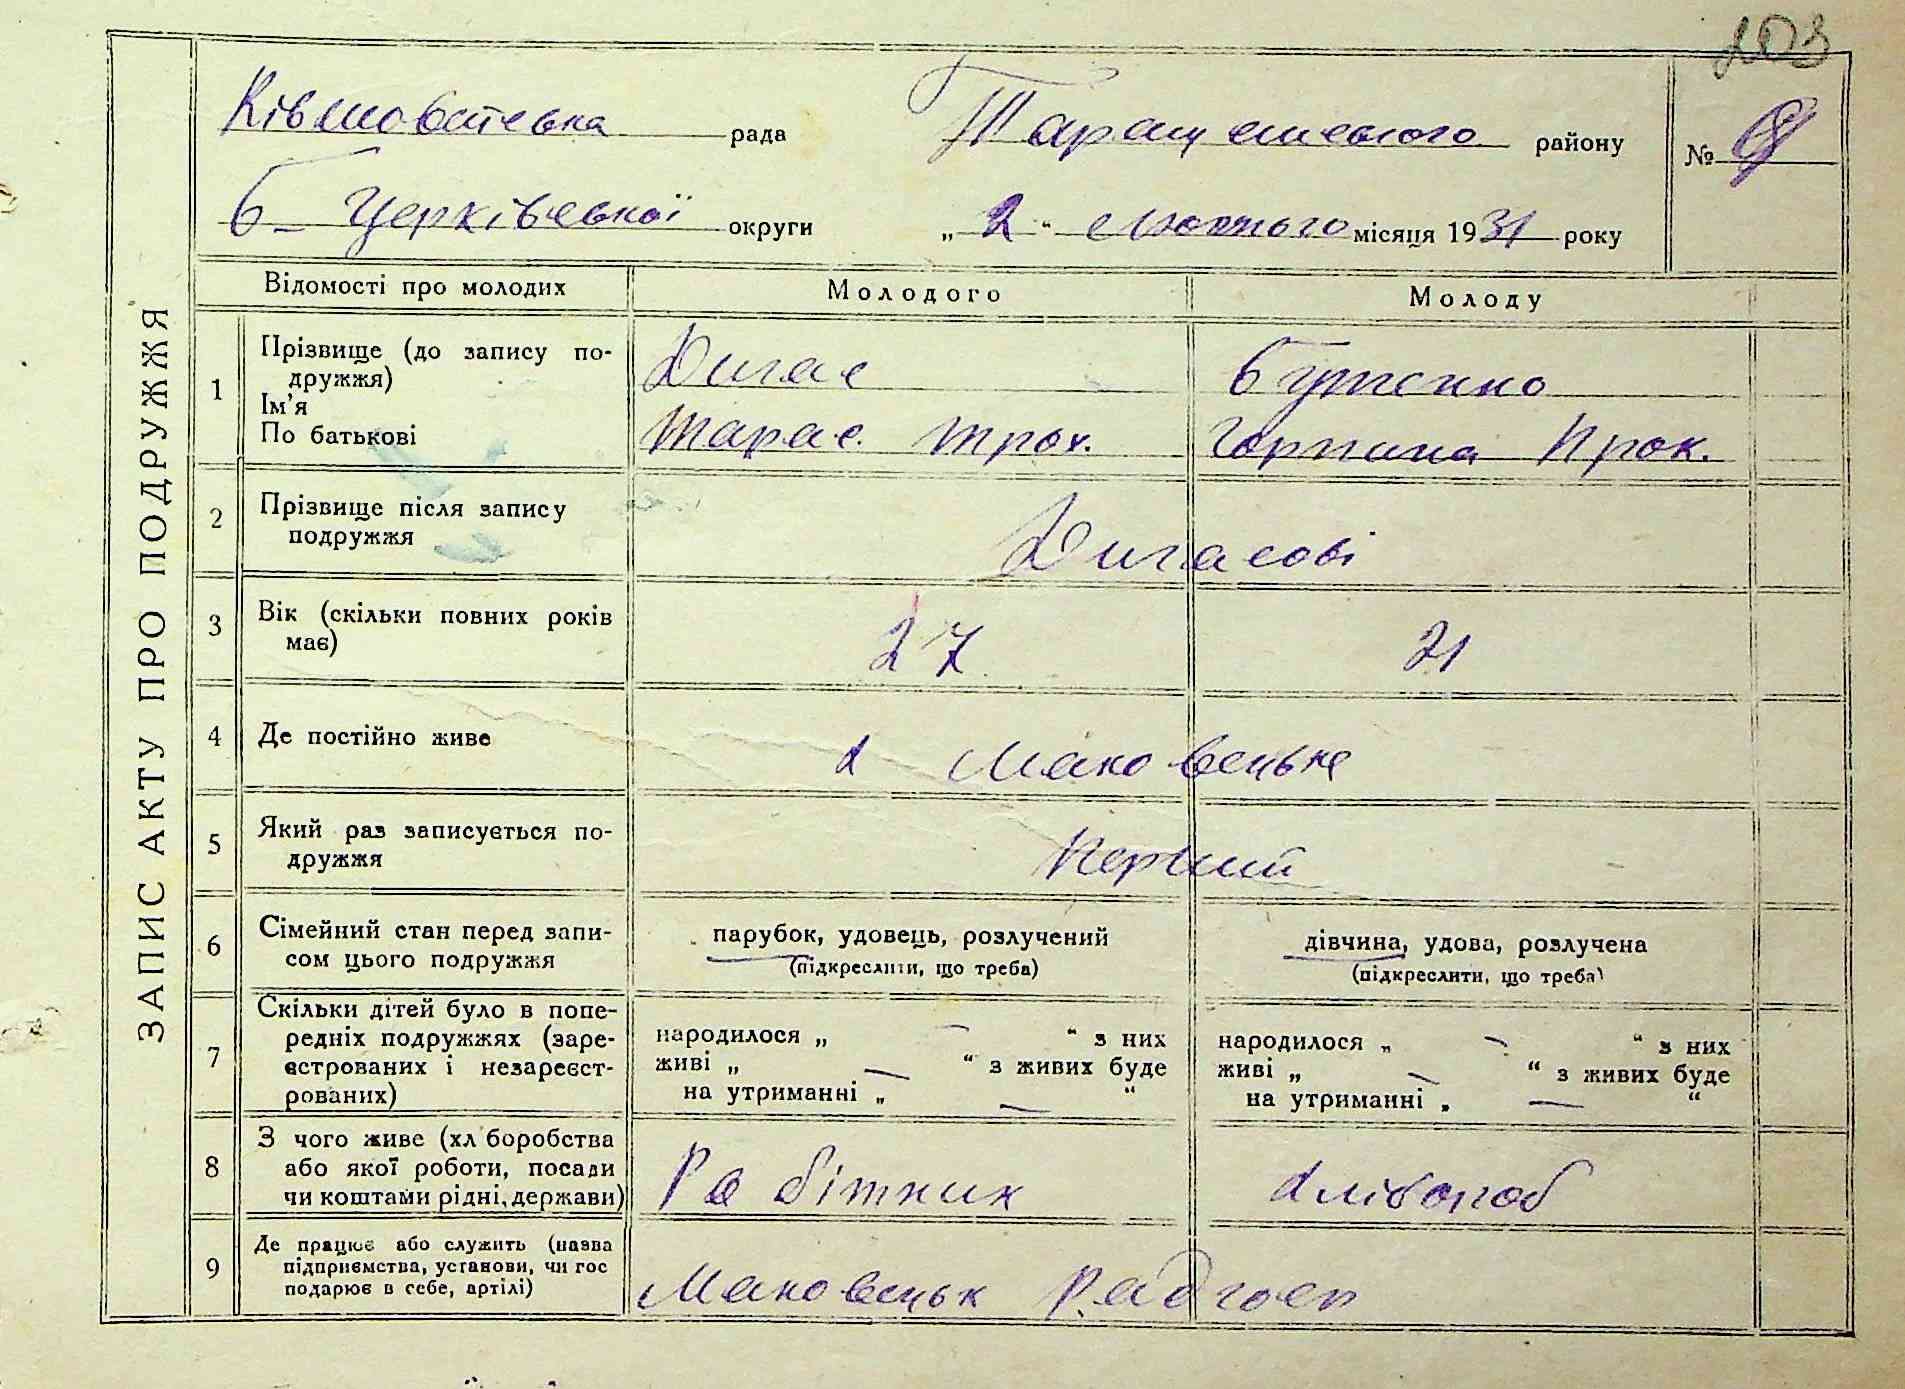 203
Ківшоватська рада Таращанського району № 9
Б-Церківської округи „ 2 “ лютого місяця 1931 року
ЗАПИС АКТУ ПРО ПОДРУЖЖЯ
Відомості про молодих Молодого Молоду
1 Прізвище (до запису по-
дружжя)
Ім'я
По батькові
Дигас
Тарас Трох.
Бутенко
Горпина Прок.
2 Прізвище після запису
подружжя
Дигасові
3 Вік (скільки повних років
має)
27 21
4 Де постійно живе
х Маковецьке
5 Який раз записується по-
дружжя
Перший
6 Сімейний стан перед запи-
сом цього подружжя
парубок, удовець, розлучений
(підкреслити, що треба)
дівчина, удова, розлучена
(підкреслити, що треба)
7 Скільки дітей було в попе-
редніх подружжях (заре-
єстрованих і незареєст-
рованих)
народилося „ — “ з них
живі „ — “ з живих буде
на утриманні „ — “
народилося „ — “ з них
живі „ — “ з живих буде
на утриманні „ — “
8 З чого живе (хліборобства
або якої роботи, посади
чи коштами рідні, держави)
Робітник Хлібороб
9 Де працює або служить (назва
підприємства, установи, чи гос
подарює в себе, артілі)
Маковецьк Радгосп